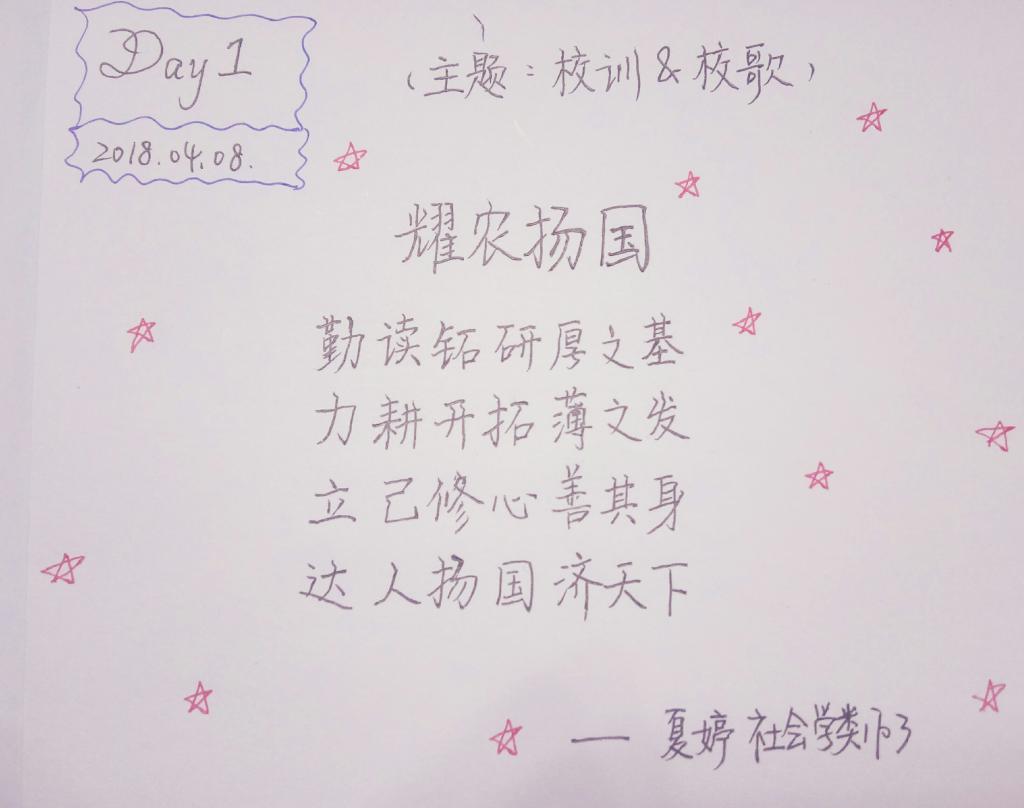 Day 1
2018.04.08.
(主题：校训 & 校歌)
耀农扬国
勤读钻研厚之基
力耕开拓薄之发
立己修心善其身
达人扬国济天下
— 夏婷 社会学类1703